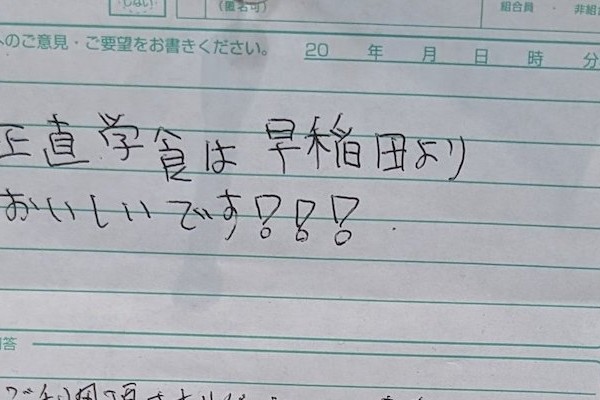 しない
(匿名可)
組合員
非組
へのご意見・ご要望をお書きください。
20 年 月 日 時 分
正直学食は早稲田より
おいしいです!!!
回答